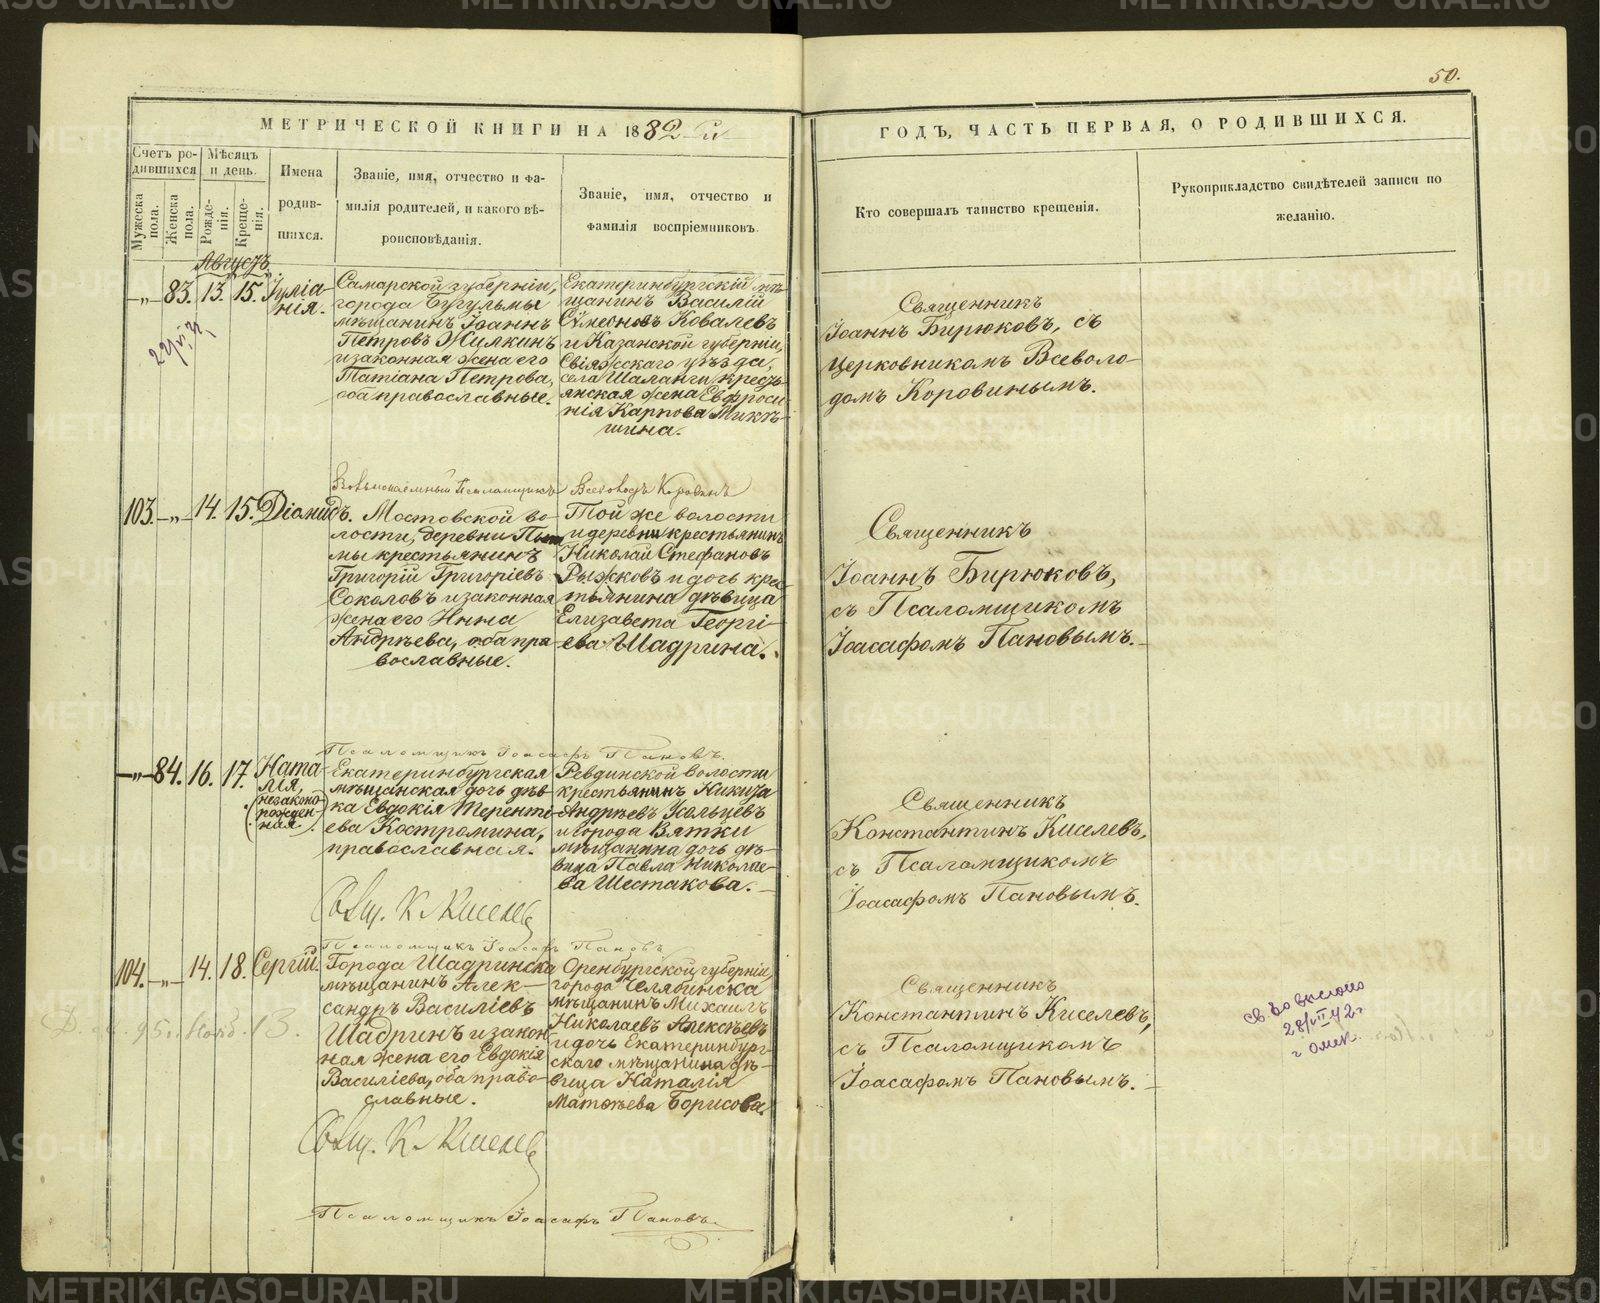 50.
МЕТРИЧЕСКОЙ КНИГИ НА 1882-й
ГОДЪ, ЧАСТЬ ПЕРВАЯ, О РОДИВШИХСЯ.
Счетъ ро-
дившихся
Мужеска
пола.
Женска
пола.
Мѣсяцъ
и день.
Рожде-
нія.
Креще-
нія.
Имена
родив-
шихся.
Званіе, имя, отчество и фа-
милія родителей, и какого вѣ-
роисповѣданія.
Званіе, имя, отчество и
фамилія воспріемниковъ.
Кто совершалъ таинство крещенія.
Рукоприкладство свидѣтелей записи по
желанію.
Августъ
-„- 83. 13. 15. Іуліа-
нія.
Самарской губерніи,
города Бугульмы
мѣщанинъ Іоаннъ
Петровъ Жилкинъ
и законная жена его
Татіана Петрова,
оба православные.
Екатеринбургскій мѣ-
щанинъ Василій
Сѵмеоновъ Ковалевъ
и Казанской губерніи,
Свіяжскаго уѣзда,
села Шаланги, кресть-
янская жена Евфроси-
нія Карпова Микѣ-
шина.
Священникъ
Іоаннъ Бирюковъ, съ
церковникомъ Всеволо-
домъ Коровинымъ.
Псаломщикъ Всеволодъ Коровинъ
103. -„- 14. 15. Діанидъ.
Мостовской во-
лости, деревни
мы крестьянинъ
Григорій Григоріевъ
Соколовъ и законная
жена его Нина
Андрѣева, оба пра-
вославные.
Той же волости
и деревни крестьянинъ
Николай Стефановъ
Рыжковъ и дочь крес-
тьянина дѣвица
Елизавета Георгі-
ева Шадрина.
Священникъ
Іоаннъ Бирюковъ,
съ Псаломщикомъ
Іоасафомъ Пановымъ.
Псаломщикъ Іоасафъ Пановъ.
-„- 84. 16. 17. Ната-
лія,
(незаконо-
рожден-
ная).
Екатеринбургская
мѣщанская дочь дѣв-
ка Евдокія Теренті-
ева Костромина,
православная.
Ревдинской волости
крестьянинъ Никита
Андрѣевъ Усольцевъ
и города Вятки
мѣщанина дочь дѣ-
вица Павла Николае-
ва Шестакова.
Священникъ
Константинъ Киселевъ,
съ Псаломщикомъ
Іоасафомъ Пановымъ.
Свящ. К. Киселевъ
Псаломщикъ Іоасафъ Пановъ
104. -„- 14. 18. Сергій.
Города Шадринска
мѣщанинъ Алек-
сандръ Василіевъ
Шадринъ и закон-
ная жена его Евдокія
Василіева, оба право-
славные.
Оренбургской губерніи,
города Челябинска
мѣщанинъ Михаилъ
Николаевъ Алексѣевъ
и дочь Екатеринбург-
скаго мѣщанина дѣ-
вица Наталія
Матѳѣева Борисова.
Священникъ
Константинъ Киселевъ,
съ Псаломщикомъ
Іоасафомъ Пановымъ.
Св-во выслано
28/VII 42г
г Омск.
Свящ. К. Киселевъ
Псаломщикъ Іоасафъ Пановъ.
METRIKI.GASO-URAL.RU